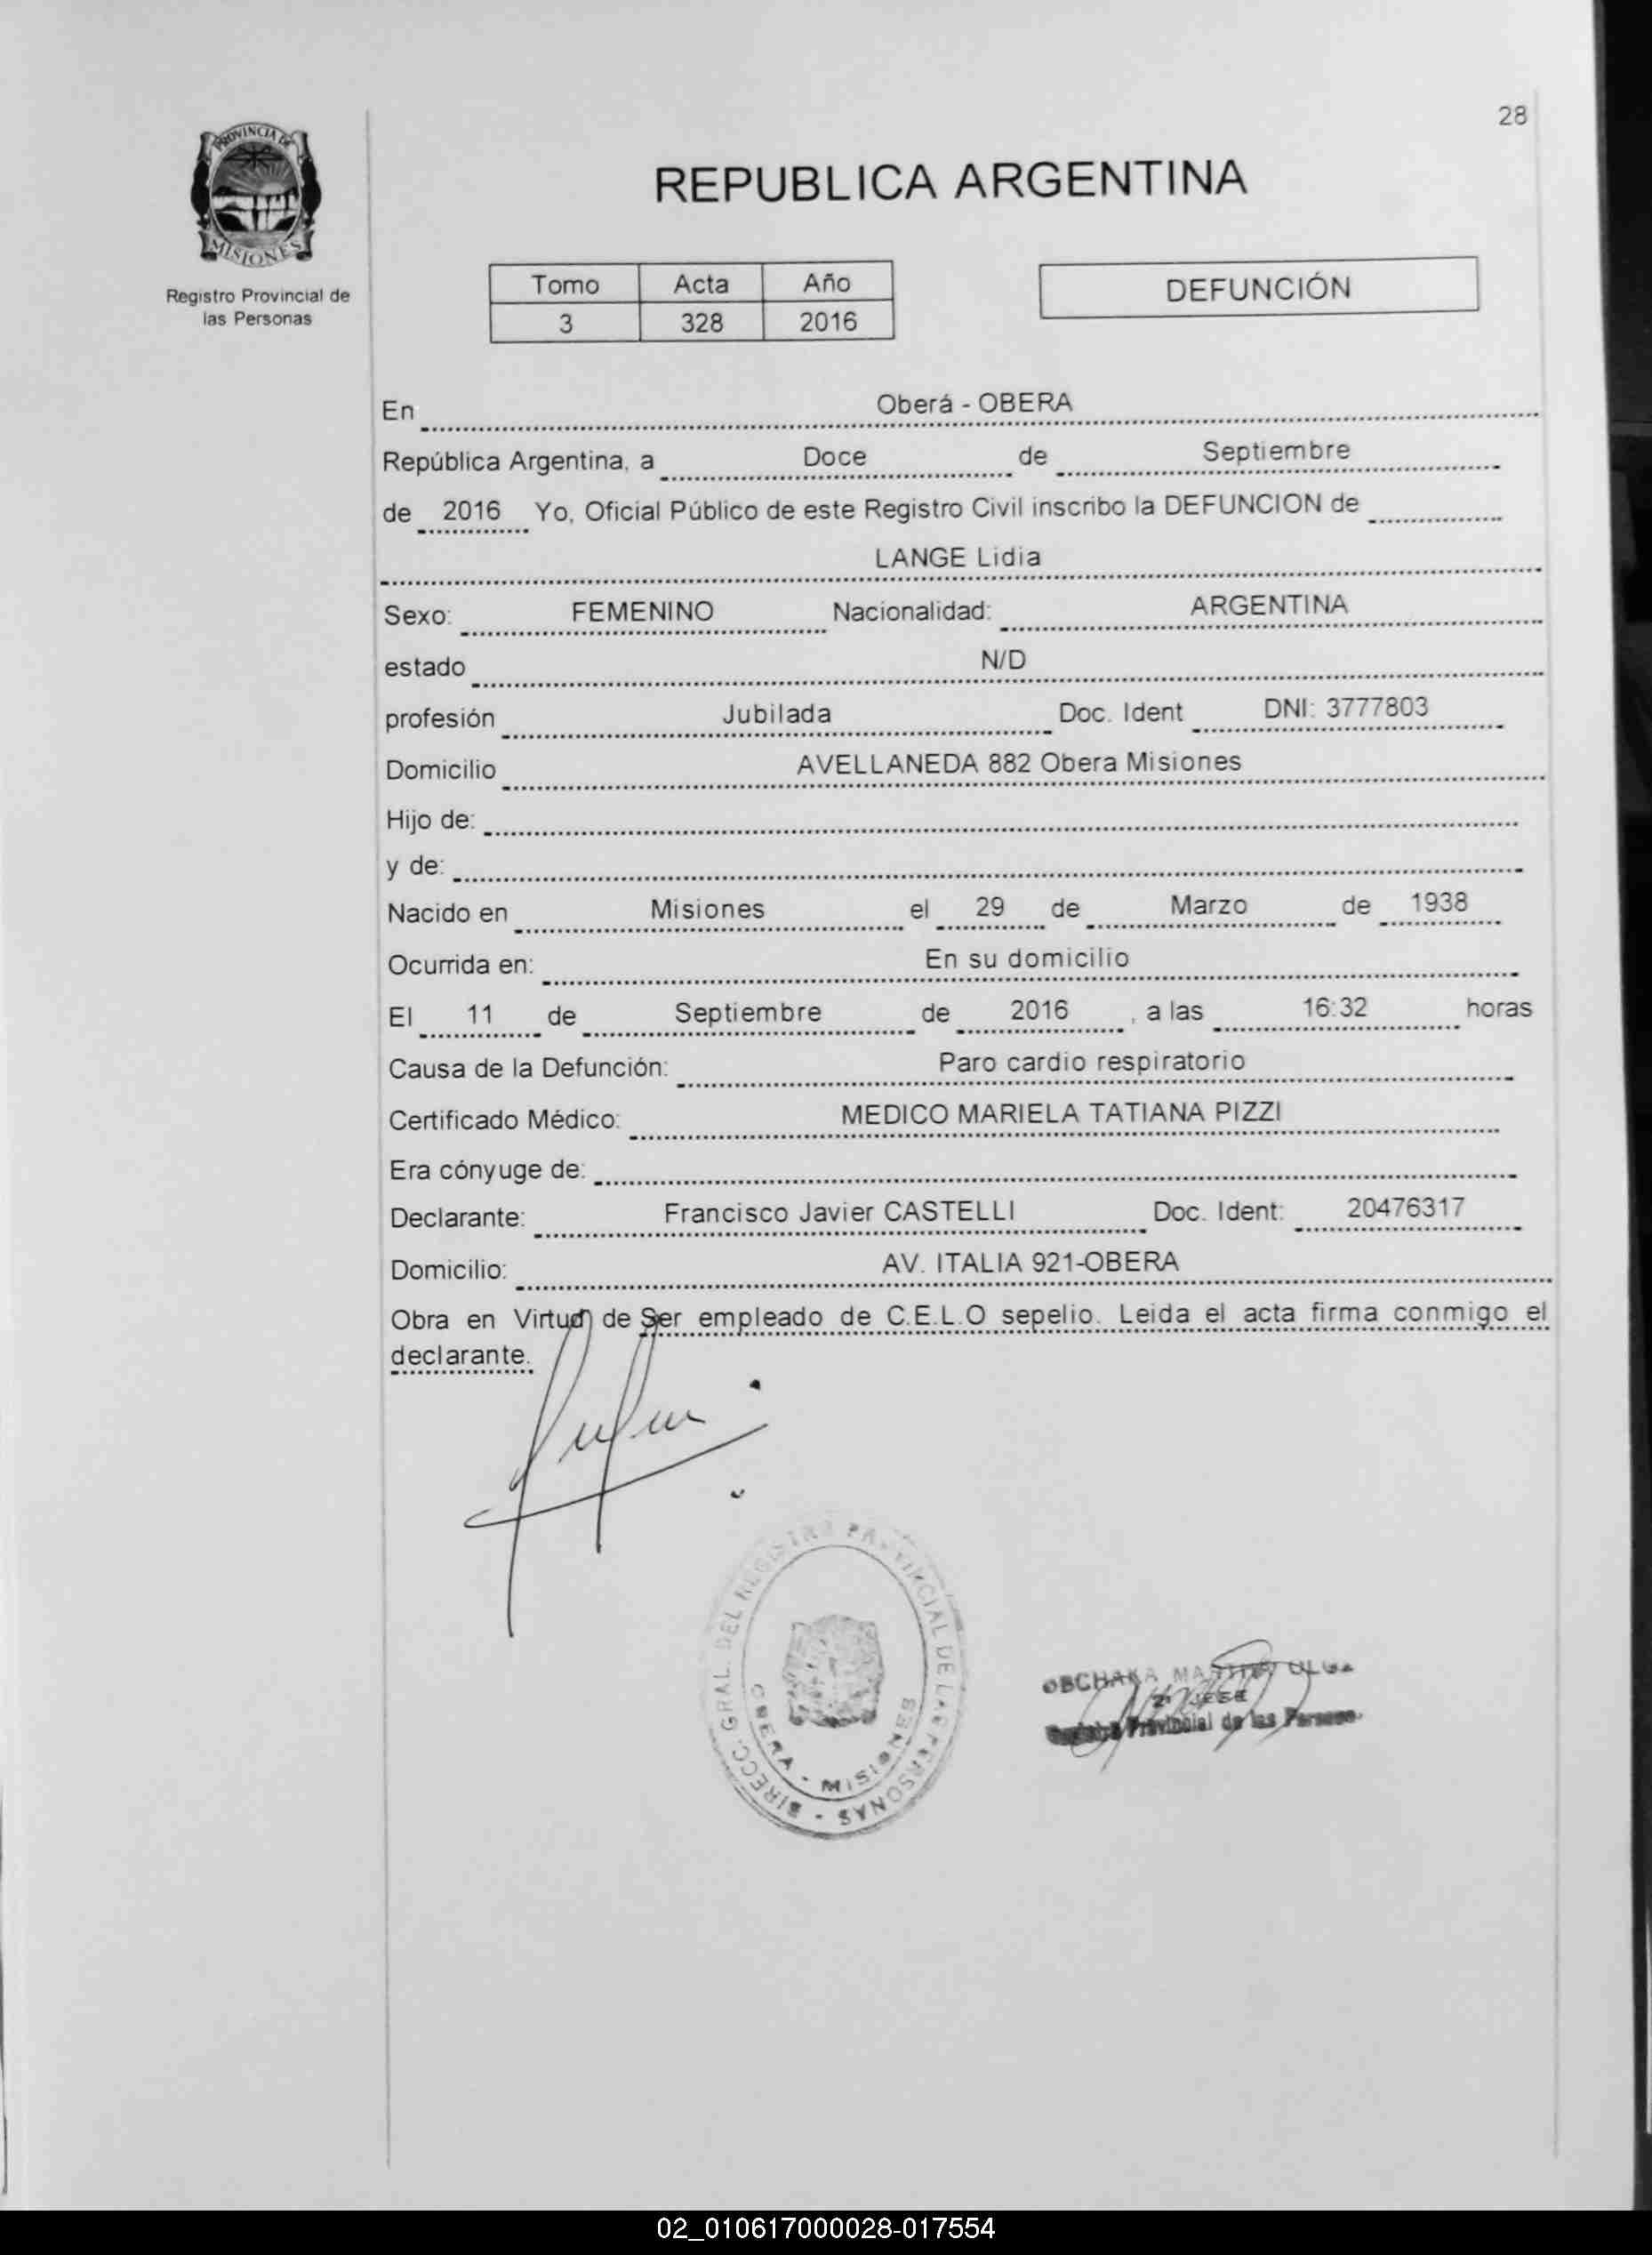 28
PROVINCIA DE
MISIONES
Registro Provincial de
las Personas
REPUBLICA ARGENTINA
Tomo Acta Año
3 328 2016
DEFUNCIÓN
En Oberá - OBERA
República Argentina, a Doce de Septiembre
de 2016 Yo, Oficial Público de este Registro Civil inscribo la DEFUNCION de
LANGE Lidia
Sexo: FEMENINO Nacionalidad: ARGENTINA
estado N/D
profesión Jubilada Doc. Ident DNI: 3777803
Domicilio AVELLANEDA 882 Obera Misiones
Hijo de:
y de:
Nacido en Misiones el 29 de Marzo de 1938
Ocurrida en: En su domicilio
El 11 de Septiembre de 2016 , a las 16:32 horas
Causa de la Defunción: Paro cardio respiratorio
Certificado Médico: MEDICO MARIELA TATIANA PIZZI
Era cónyuge de:
Declarante: Francisco Javier CASTELLI Doc. Ident: 20476317
Domicilio: AV. ITALIA 921-OBERA
Obra en Virtud de Ser empleado de C.E.L.O sepelio. Leida el acta firma conmigo el
declarante.
DIRECC. GRAL. DEL REGISTRO PROVINCIAL DE LAS PERSONAS -
OBERA - MISIONES
OLGA
2° JEFE
Provincial de las Personas
02_010617000028-017554